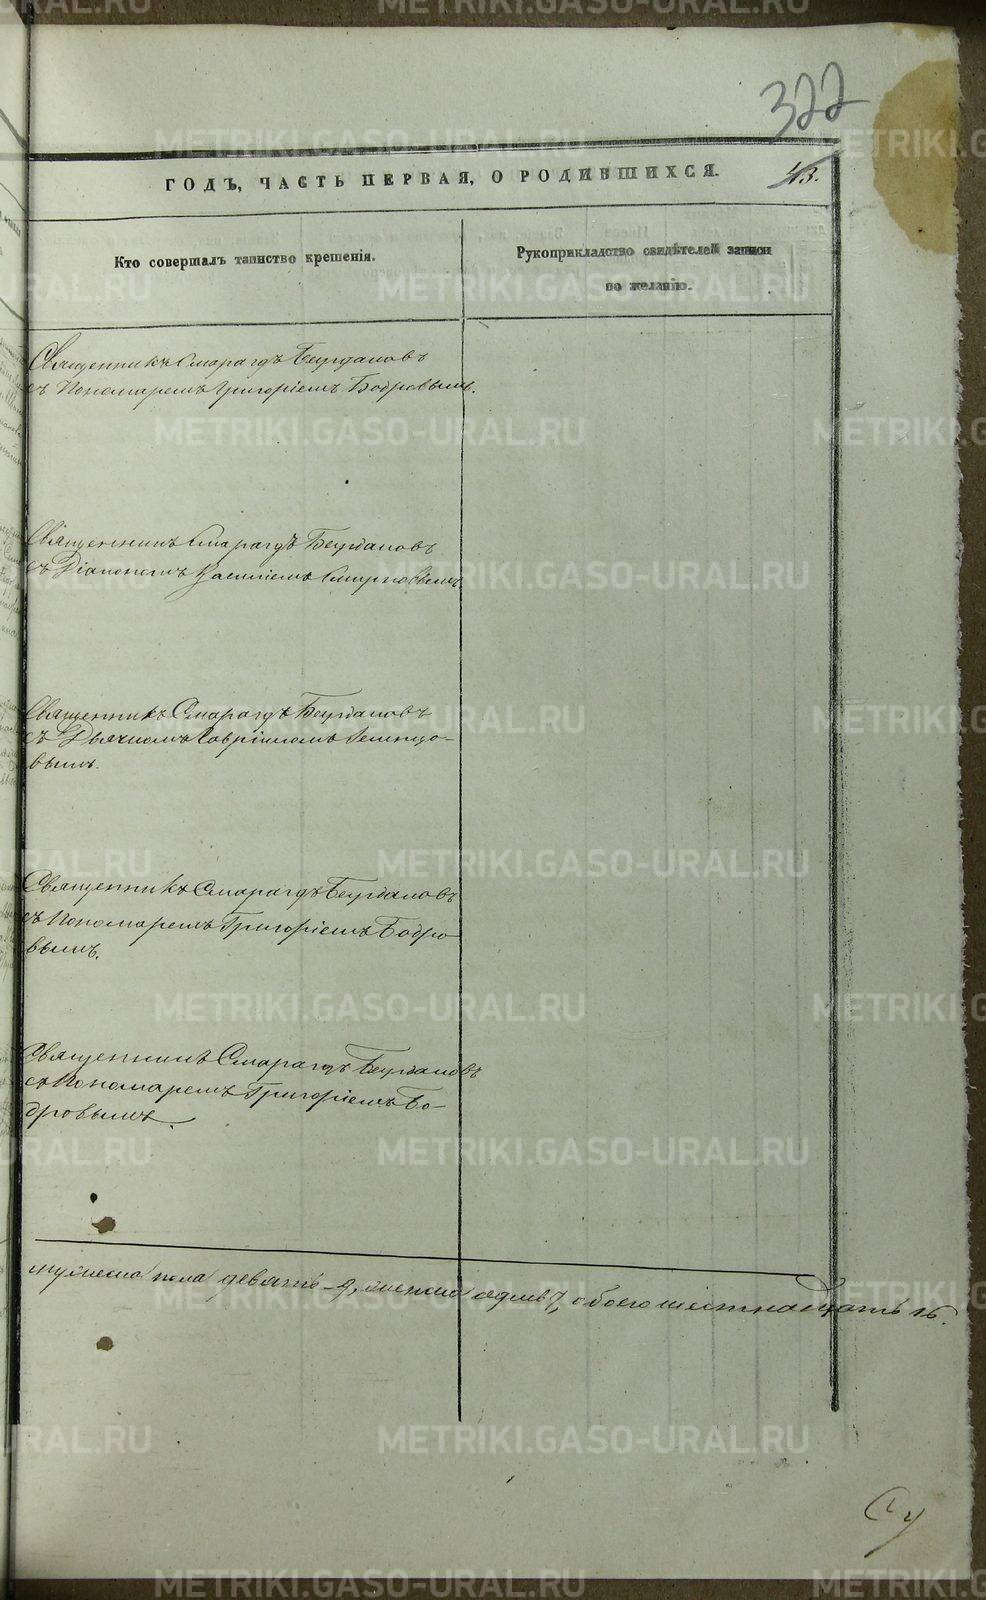 322
ГОДЪ, ЧАСТЬ ПЕРВАЯ, О РОДИВШИХСЯ.
43.
Кто совершалъ таинство крещенія.
Рукоприкладство свидѣтелей записи
по желанію.
Священникъ Смарагдъ Бурдаковъ
съ Пономаремъ Григоріемъ Бобровымъ.
Священникъ Смарагдъ Бурдаковъ
съ Діакономъ Василіемъ Смирновымъ
Священникъ Смарагдъ Бурдаковъ
съ Дьячкомъ Гавріиломъ
вымъ.
Священникъ Смарагдъ Бурдаковъ
съ Пономаремъ Григоріемъ Бобро-
вымъ.
Священникъ Смарагдъ Бурдаковъ
съ Пономаремъ Григоріемъ Бо-
бровымъ.
мужеска пола девять 9, женска седмь 7, обоего шестнадцать 16.
METRIKI.GASO-URAL.RU